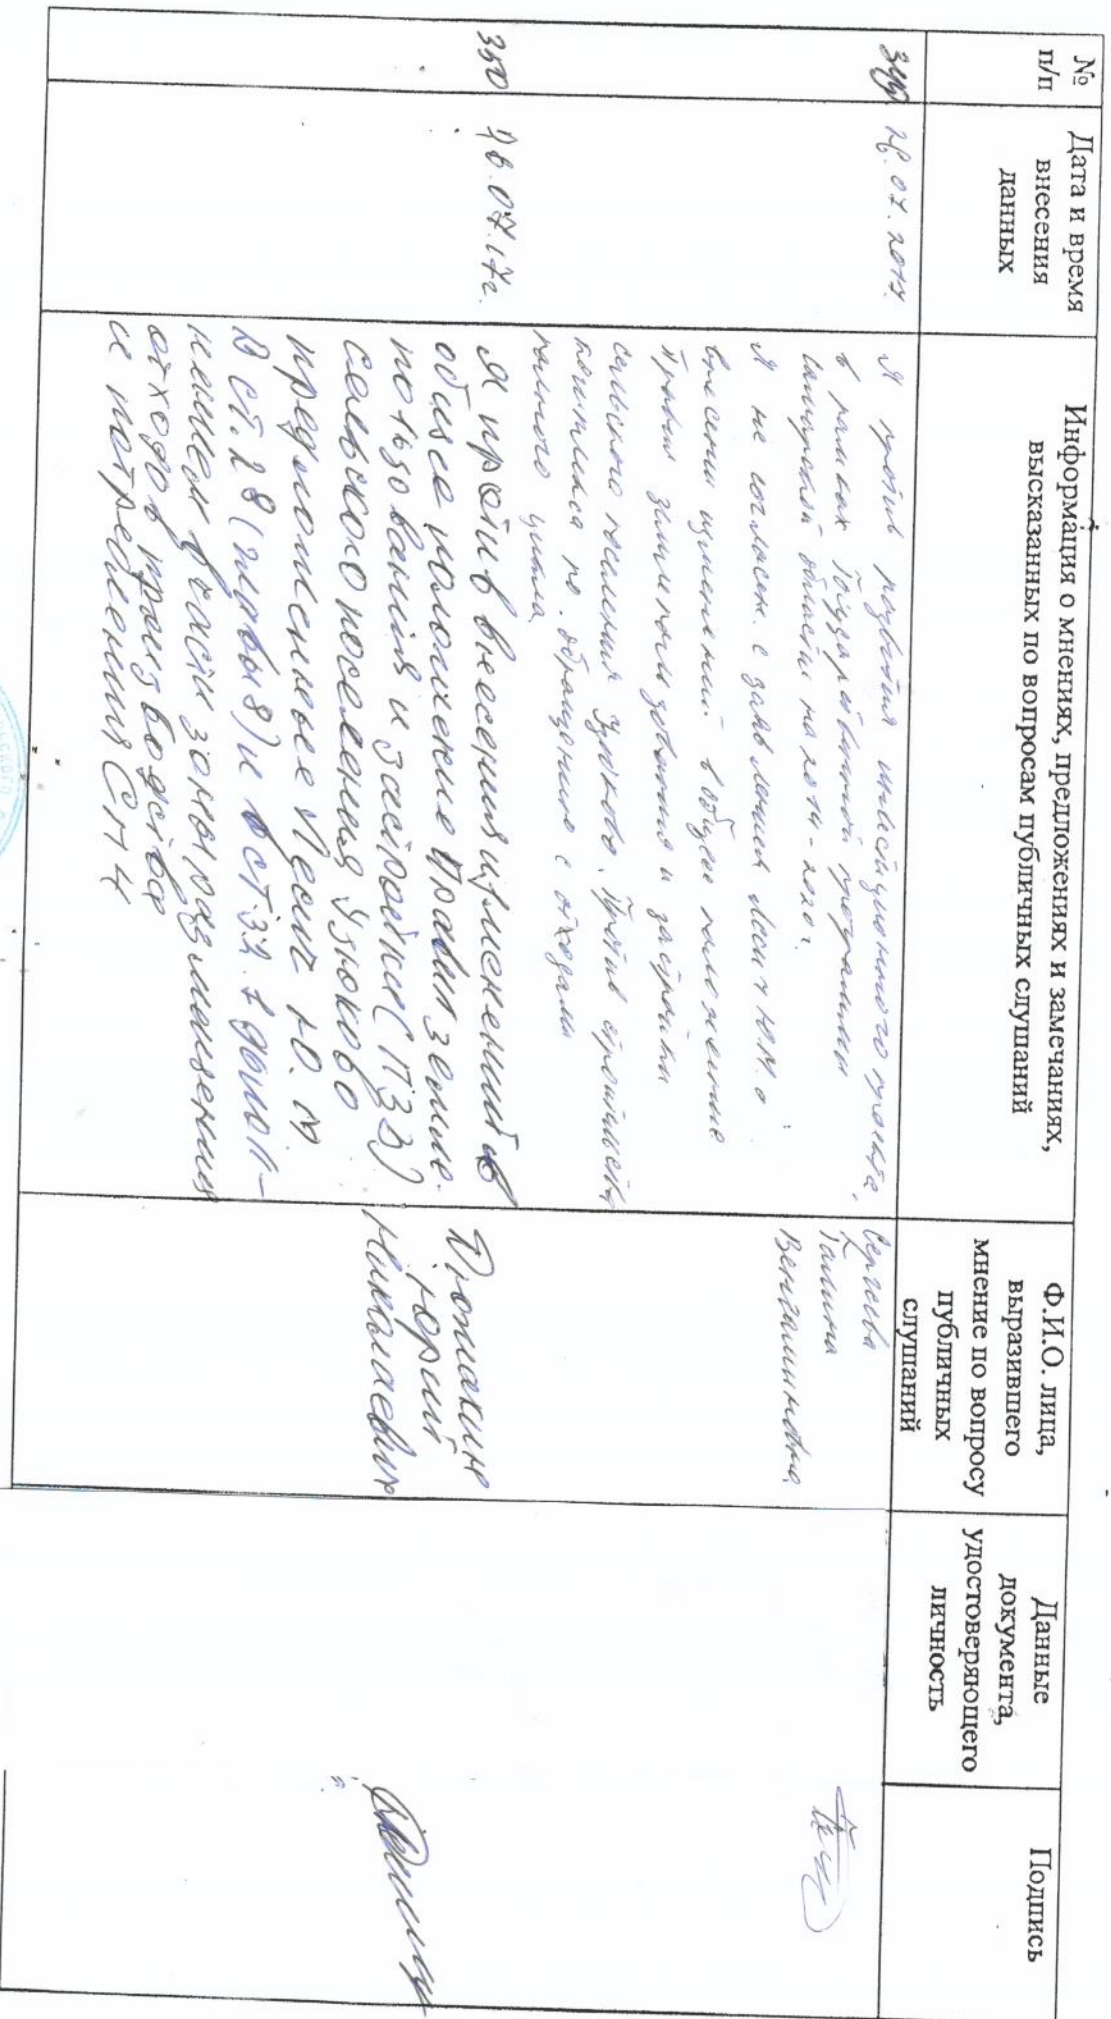 №
п/п
Дата и время
внесения
данных
Информация о мнениях, предложениях и замечаниях,
высказанных по вопросам публичных слушаний
Ф.И.О. лица,
выразившего
мнение по вопросу
публичных
слушаний
Данные
документа,
удостоверяющего
личность
Подпись
349
28.07.2017.
Я против развития инвестиционного проекта,
в рамках Государственной программы
Самарской области на 2014-2020г.
Я не согласен. с заявлением Лесич Ю.М. о
внесении изменений в общее положение
Правил землепользования и застройки
сельского поселения Узюково. Против строительства
комплекса по. обращению с отходами
полного цикла,
Сергеева
Галина
Вениаминовна
350
28.07.17г.
Я против внесения изменений в
общее положение Правил земле-
пользования и застройки (ПЗЗ)
сельского поселения Узюково
предложенные Лесич Ю.М
в ст. 28 (главы 8) и в ст. 32.
нением в части зоны размещения
отходов производства
и потребления СП-4
Юрий
Николаевич